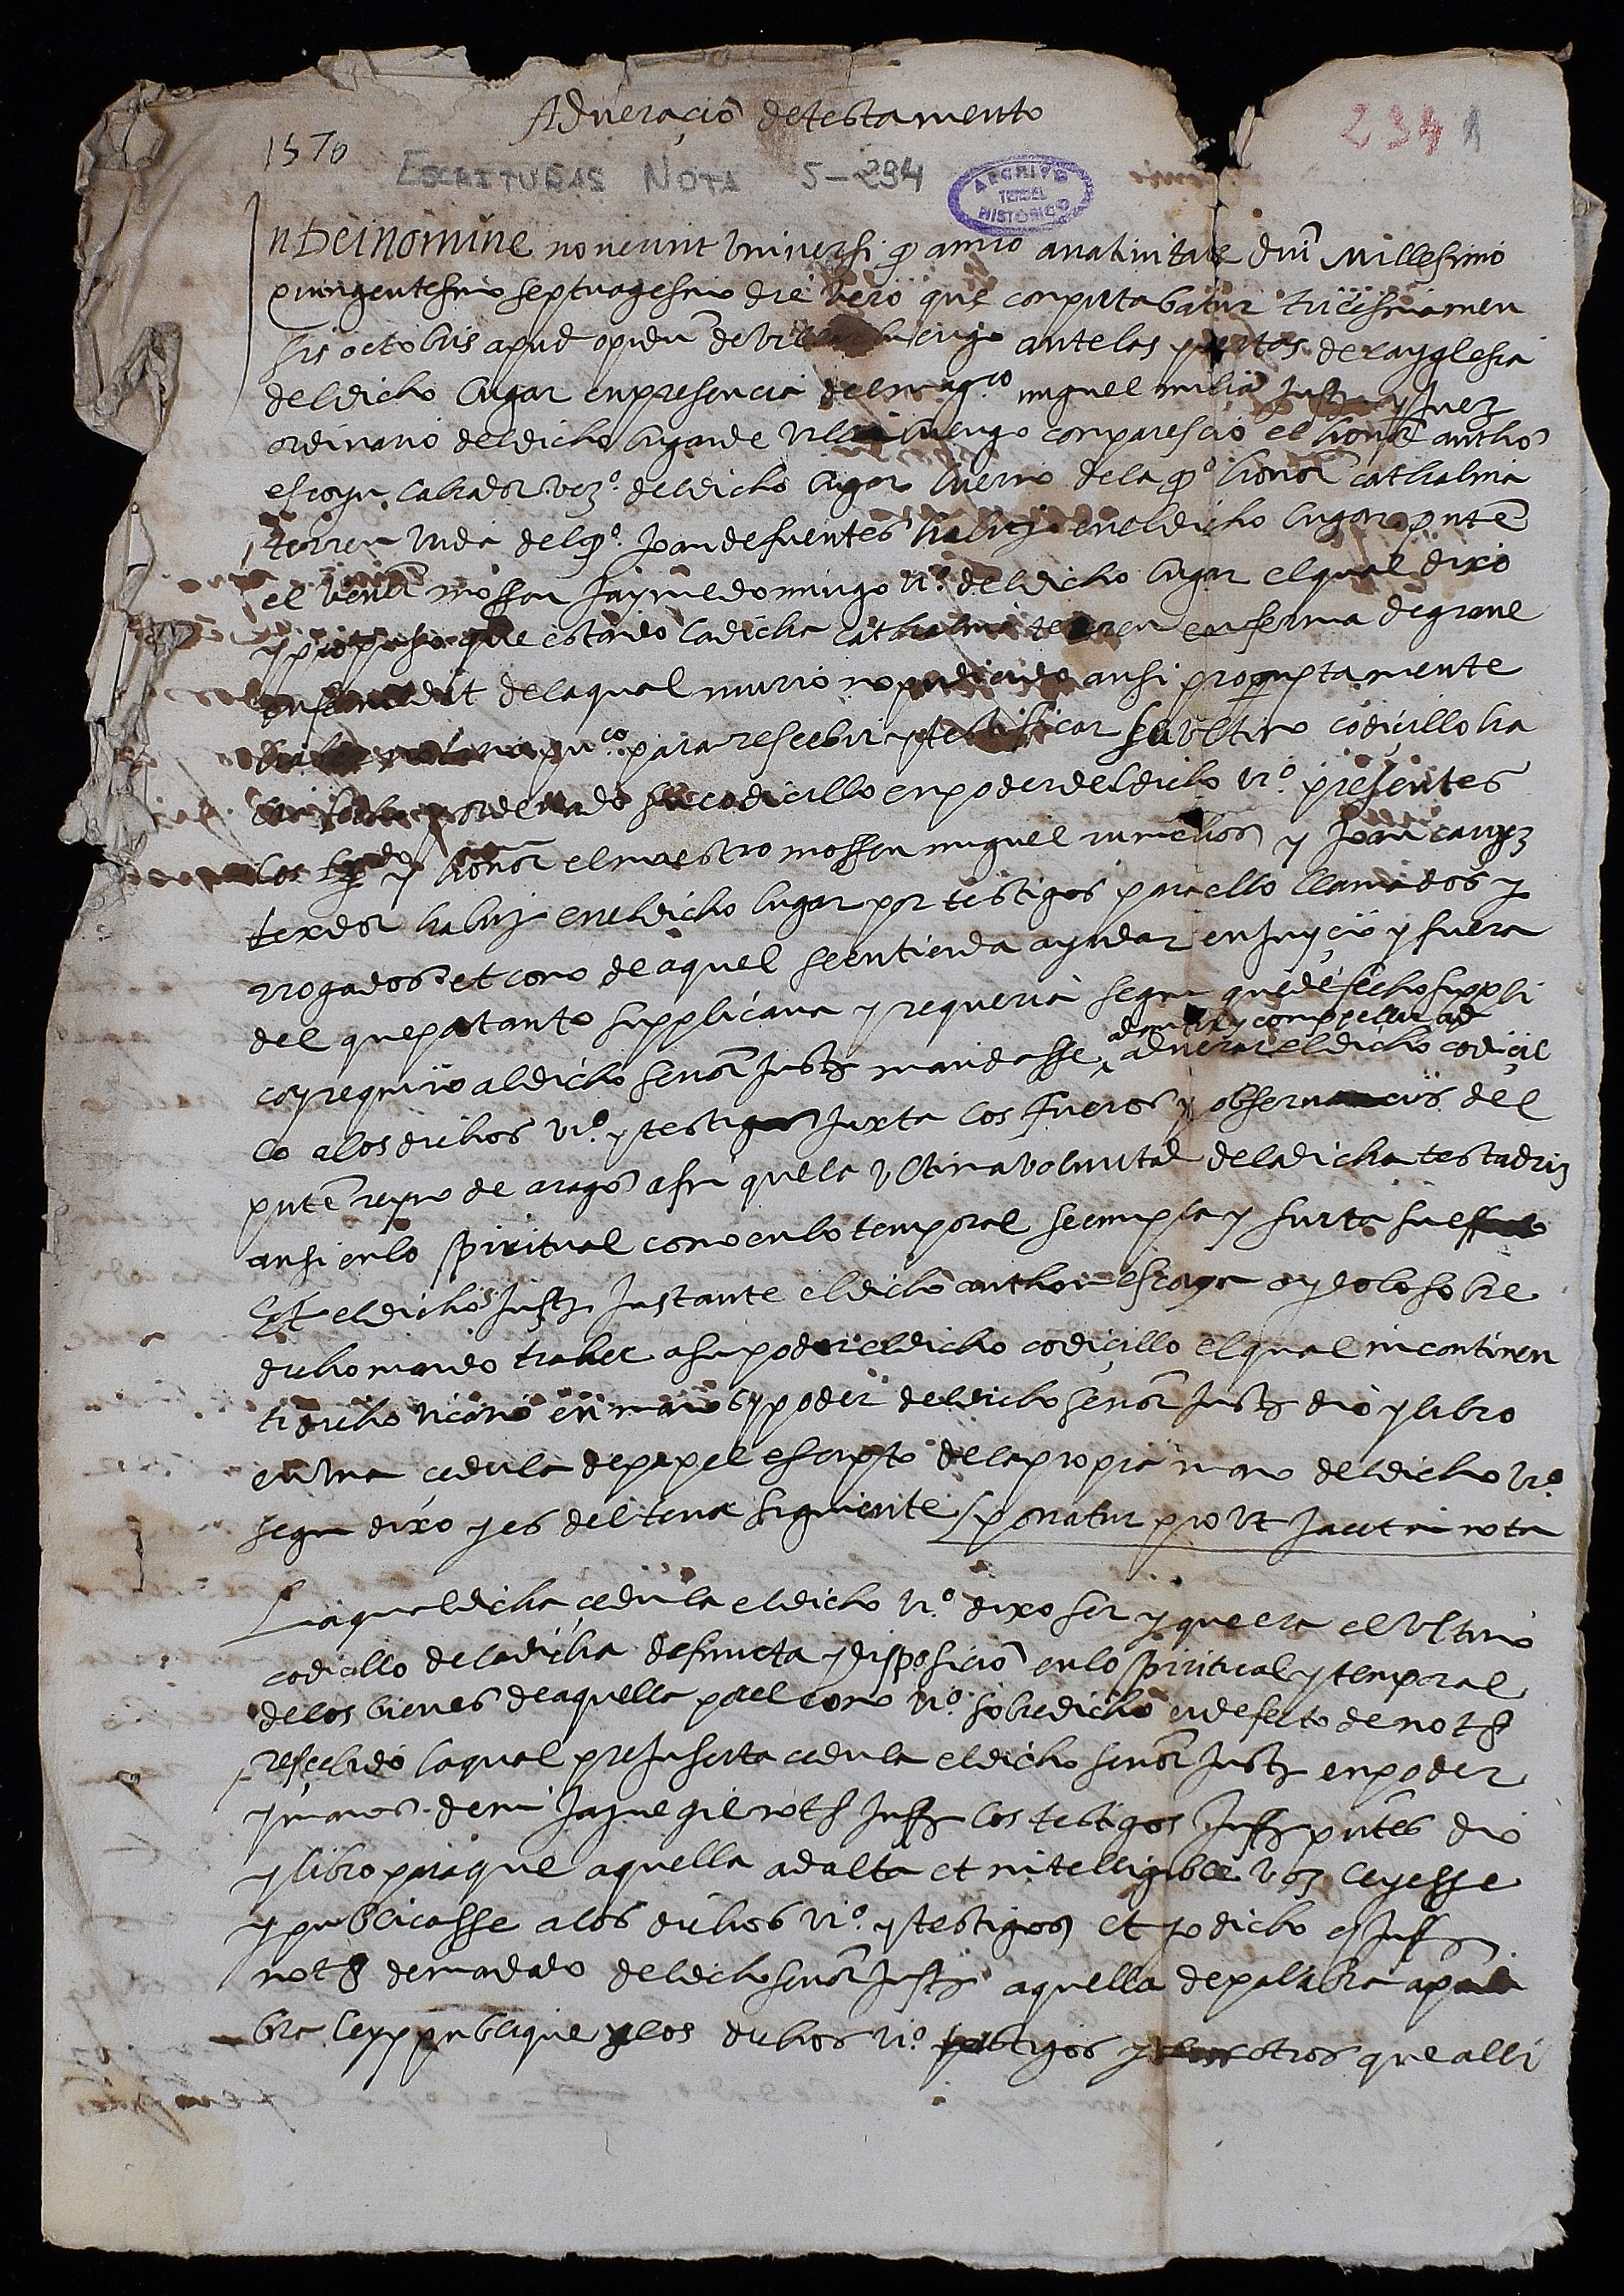 Adveraçio de testamento
1570
234 1
ESCRITURAS NOTA 5-294
ARCHIVO
TERUEL
HISTORICO
In Dei nomine noverint universi q anno a nativitate dni Millesimo
quingentesimo septuagesimo die vero que computabatur tricesima men
sis octobris apud opidu de ante las puertas de la yglesia
del dicho lugar en presencia del mag.co miguel milia Justª y Juez
ordinario del dicho lugar de luengo comparescio el honor antho
escoyn labrador vezº. del dicho lugar hierno de la qº honor cathalina
terren vida del qº. Joan de fuentes habitz en el dicho lugar pnte
el vener mossen Jayme domingo viº. del dicho lugar el qual dixo
y propuso que estando la dicha cathalina terren enferma de grave
enfermedat de la qual murio no pudiendo ansi promptamente
para rescebir y testificar su ultimo codicillo ha
ordenado su codicillo en poder del dicho viº. presentes
los y honor el maestro mossen miguel y Joan
texedor habitz en el dicho lugar por testigos para ello llamados y
rrogados et como de aquel se entienda ayudar en Juycio y fuera
del que por tanto supplicava y requeria segun que de fecho suppli
co y requirio al dicho señor Justª mandasse adverar el dicho codicil
y compellir ad
lo a los dichos viº. y testigos Juxta los fueros y observancias del
pnte reyno de arago a fin que la ultima voluntad de la dicha testadriz
ansi en lo spiritual como en lo temporal se cumpla y surta su effecto
Et el dicho Justª Instante el dicho anthon escoyn
dicho mando traher a su poder el dicho codicillo el qual incontinen
ti dicho vicario en manos y poder del dicho señor Justª dio y libro
en una cedula de papel escripto de la propia mano del dicho viº.
segun dixo y es del tenor siguiente ponatur prout Jacet in nota
La qual dicha cedula el dicho viº. dixo ser y que era el ultimo
codicillo de la dicha defuncta y disposicio en lo spiritual y temporal
de los bienes de aquella por el como viº. sobredicho en defecto de notº
rescebido la qual preInserta cedula el dicho señor Justª en poder
y manos de mi Jayme gil notº Inffº los testigos Inffº pntes dio
y libro para que aquella ad alta et intelligible voz leyesse
y publicasse a los dichos viº. y testigos et yo dicho Inffº
notº de mandado del dicho señor Justª aquella de palabra a pala
bra ley y publique y los dichos viº. testigos y otros que alli